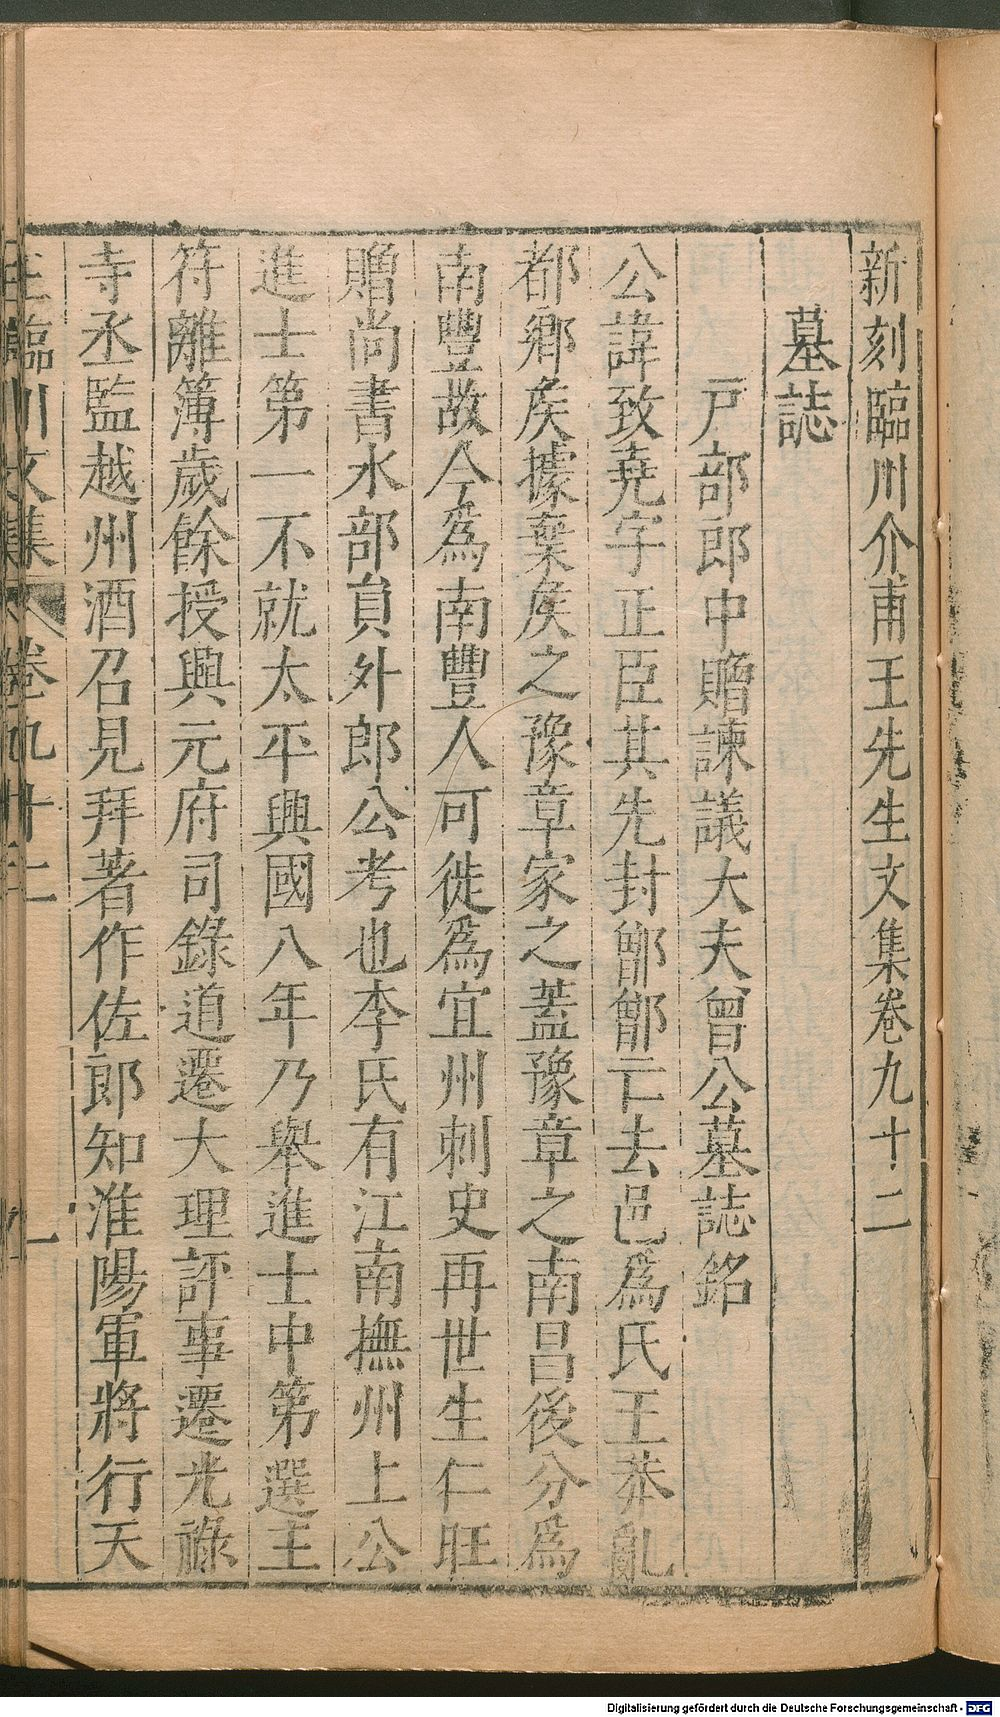 新刻臨川介甫王先生文集卷九十二
墓誌
戸部郎中贈諫議大夫曾公墓誌銘
公諱致尭字正臣其先封鄫鄫亡去邑爲氏王莽亂
都郷矦據棄矦之豫章家之蓋豫章之南昌後分爲
南豐故今爲南豐人可徙爲宜州刺史再世生仁旺
贈尚書水部員外郎公考也李氏有江南撫州上公
進士第一不就太平興國八年乃舉進士中第選主
符離簿歲餘授興元府司錄道遷大理評事遷光祿
寺丞監越州酒召見拜著作佐郎知淮陽軍將行天
王臨川文集 卷九十二 一
Digitalisierung gefördert durch die Deutsche Forschungsgemeinschaft - DFG